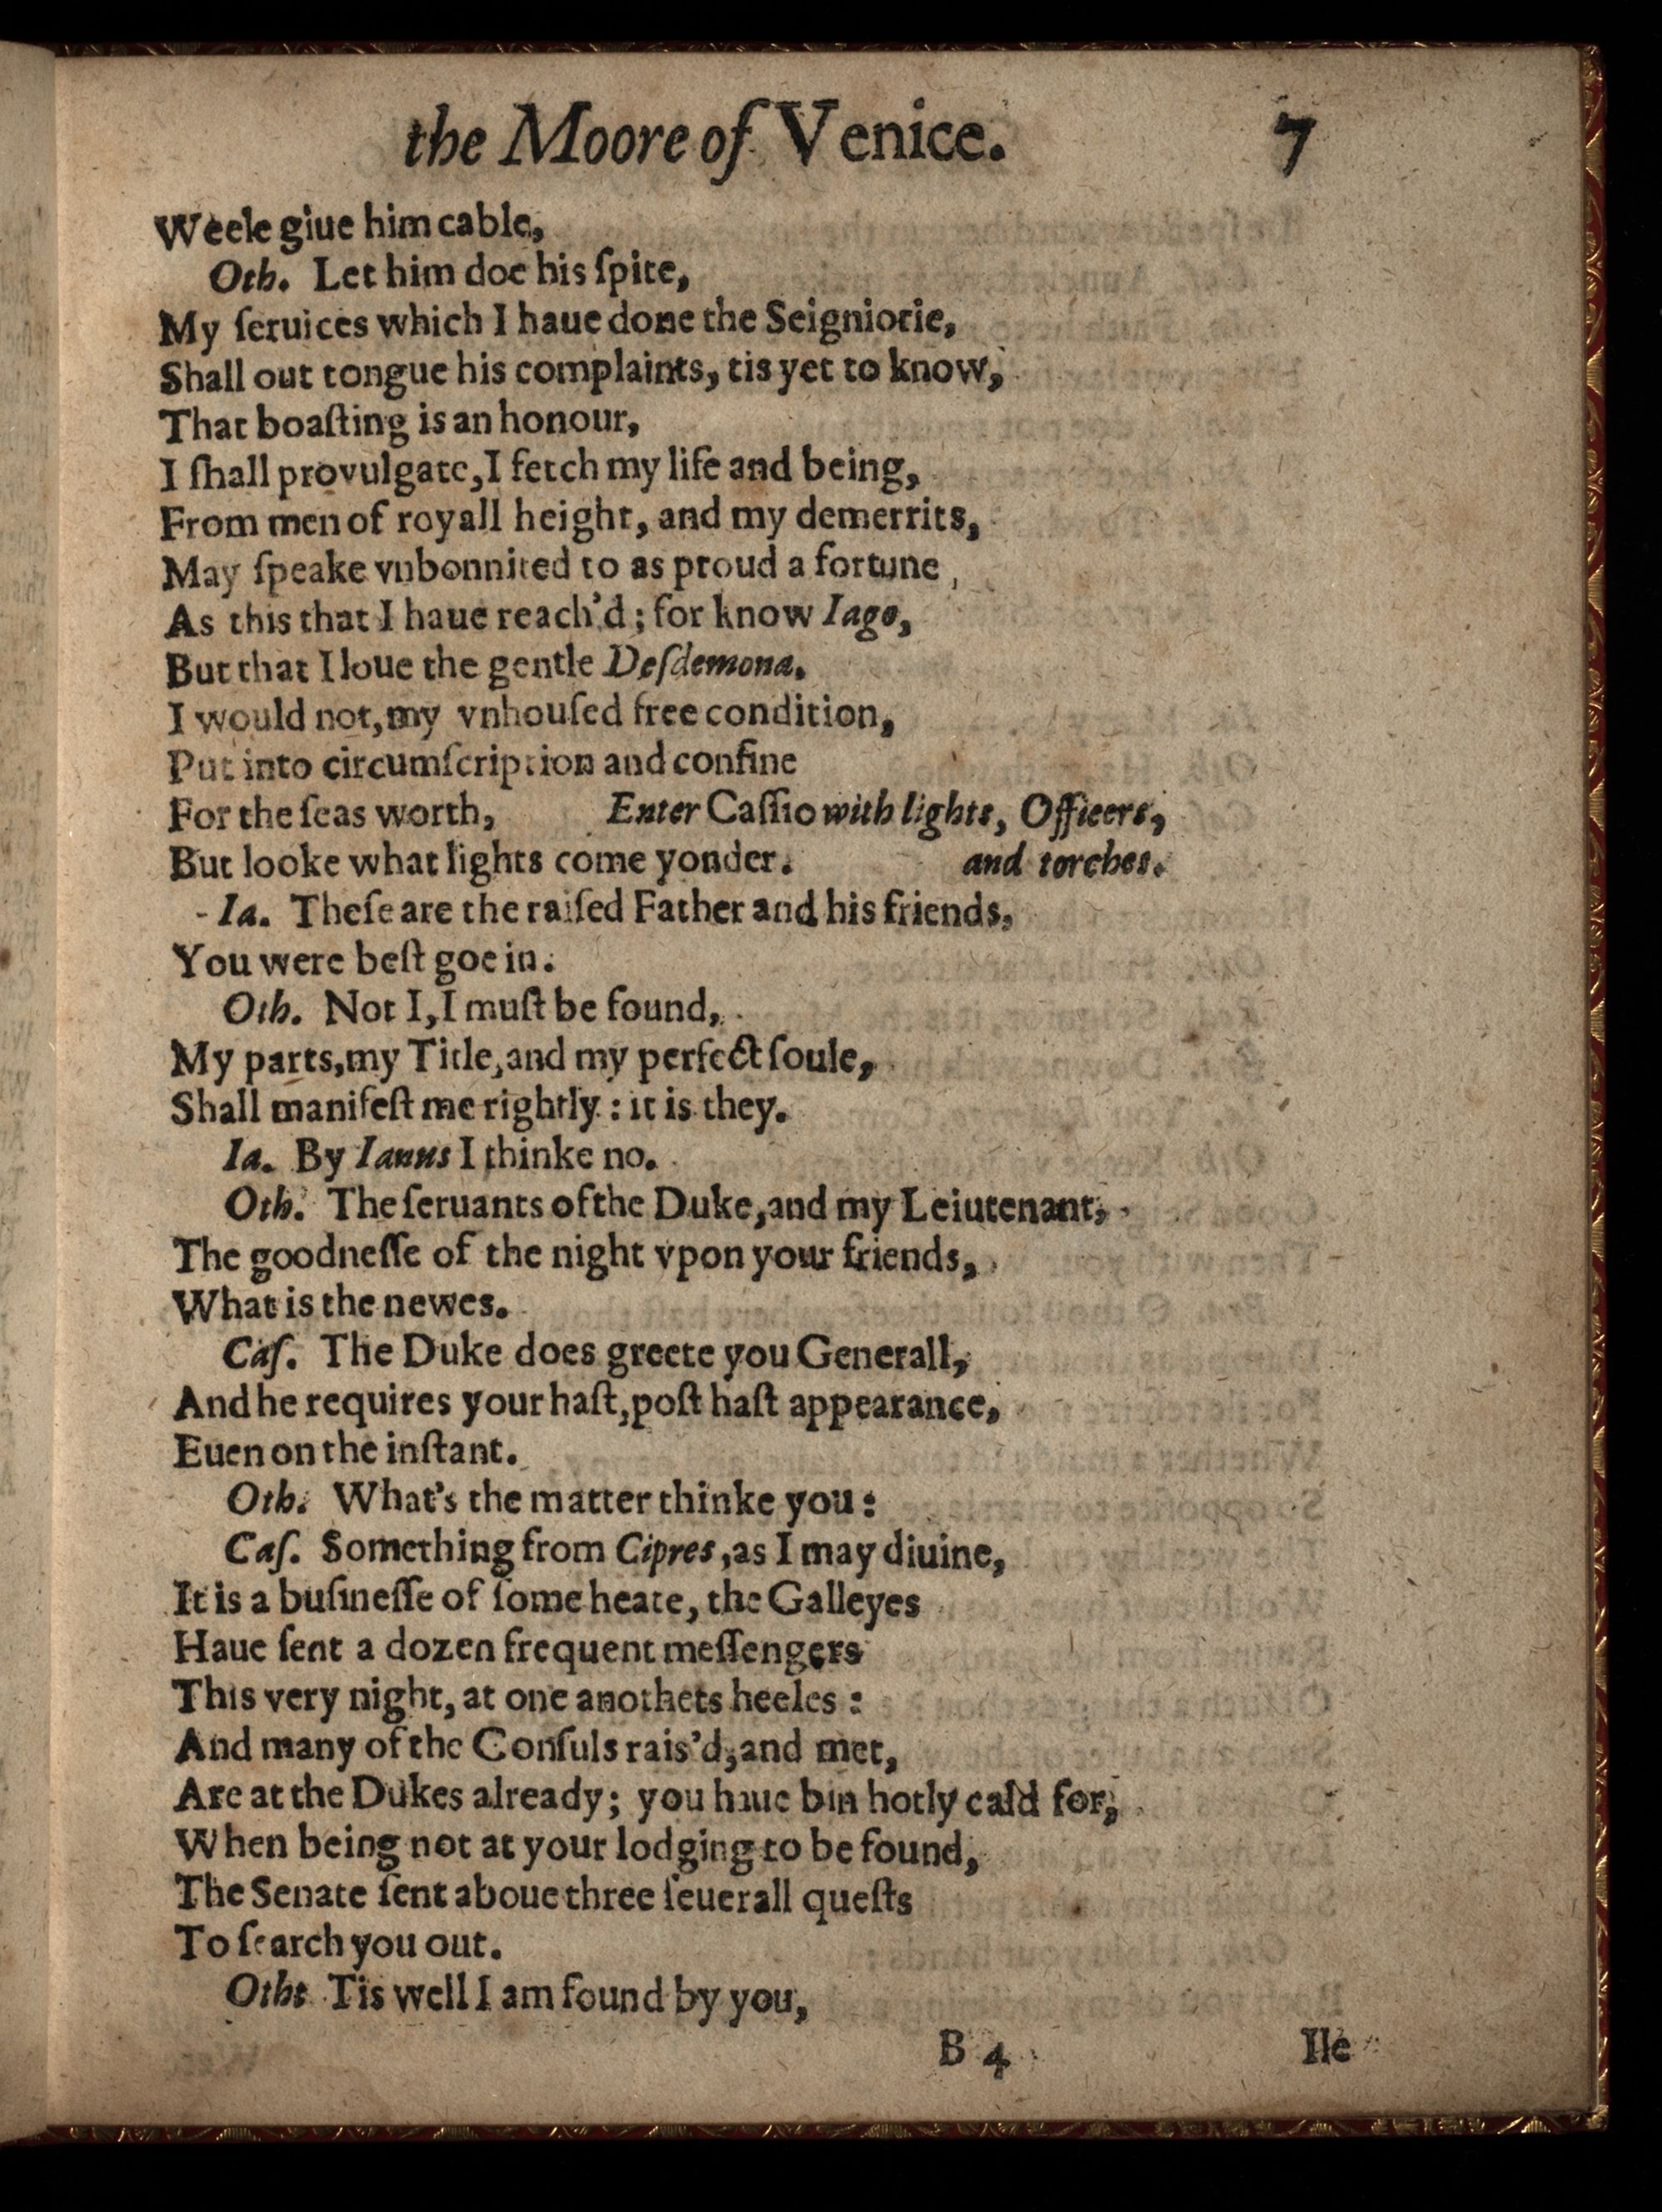 the Moore of Venice. 7
Weele giue him cable,
Oth. Let him doe his ſpite,
My ſeruices which I haue done the Seigniorie,
Shall out tongue his complaints, tis yet to know,
That boaſting is an honour,
I ſhall provulgate, I fetch my life and being,
From men of royall height, and my demerrits,
May ſpeake vnbonnited to as proud a fortune,
As this that I haue reach'd; for know Iago,
But that I loue the gentle Deſdemona.
I would not, my vnhouſed free condition,
Put into circumſcription and confine
For the ſeas worth, Enter Caſſio with lights, Officers,
But looke what lights come yonder. and torches.
Ia. Theſe are the raiſed Father and his friends,
You were beſt goe in.
Oth. Not I, I muſt be found,
My parts, my Title, and my perfect ſoule,
Shall manifeſt me rightly: it is they.
Ia. By Ianus I thinke no.
Oth. The ſeruants of the Duke, and my Leiutenant,
The goodneſſe of the night vpon your friends,
What is the newes.
Caſ. The Duke does greete you Generall,
And he requires your haſt, poſt haſt appearance,
Euen on the inſtant.
Oth. What's the matter thinke you:
Caſ. Something from Cipres, as I may diuine,
It is a buſineſſe of ſome heate, the Galleyes
Haue ſent a dozen frequent meſſengers
This very night, at one anothets heeles:
And many of the Conſuls rais'd, and met,
Are at the Dukes already; you haue bin hotly cald for,
When being not at your lodging to be found,
The Senate ſent aboue three ſeuerall queſts
To ſearch you out.
Oth: Tis well I am found by you,
B 4 Ile